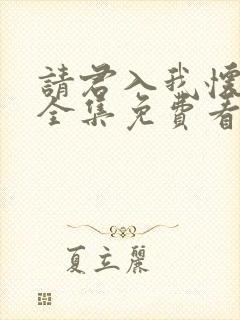 請君入我懷
全集免費看
夏立麗